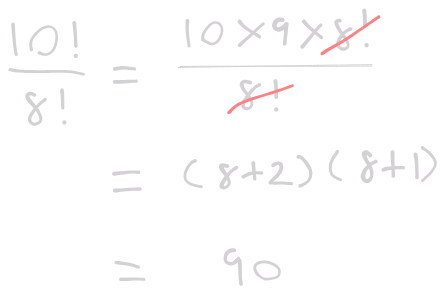 10!/8! = 10×9×8!/8!
= (8+2)(8+1)
= 90